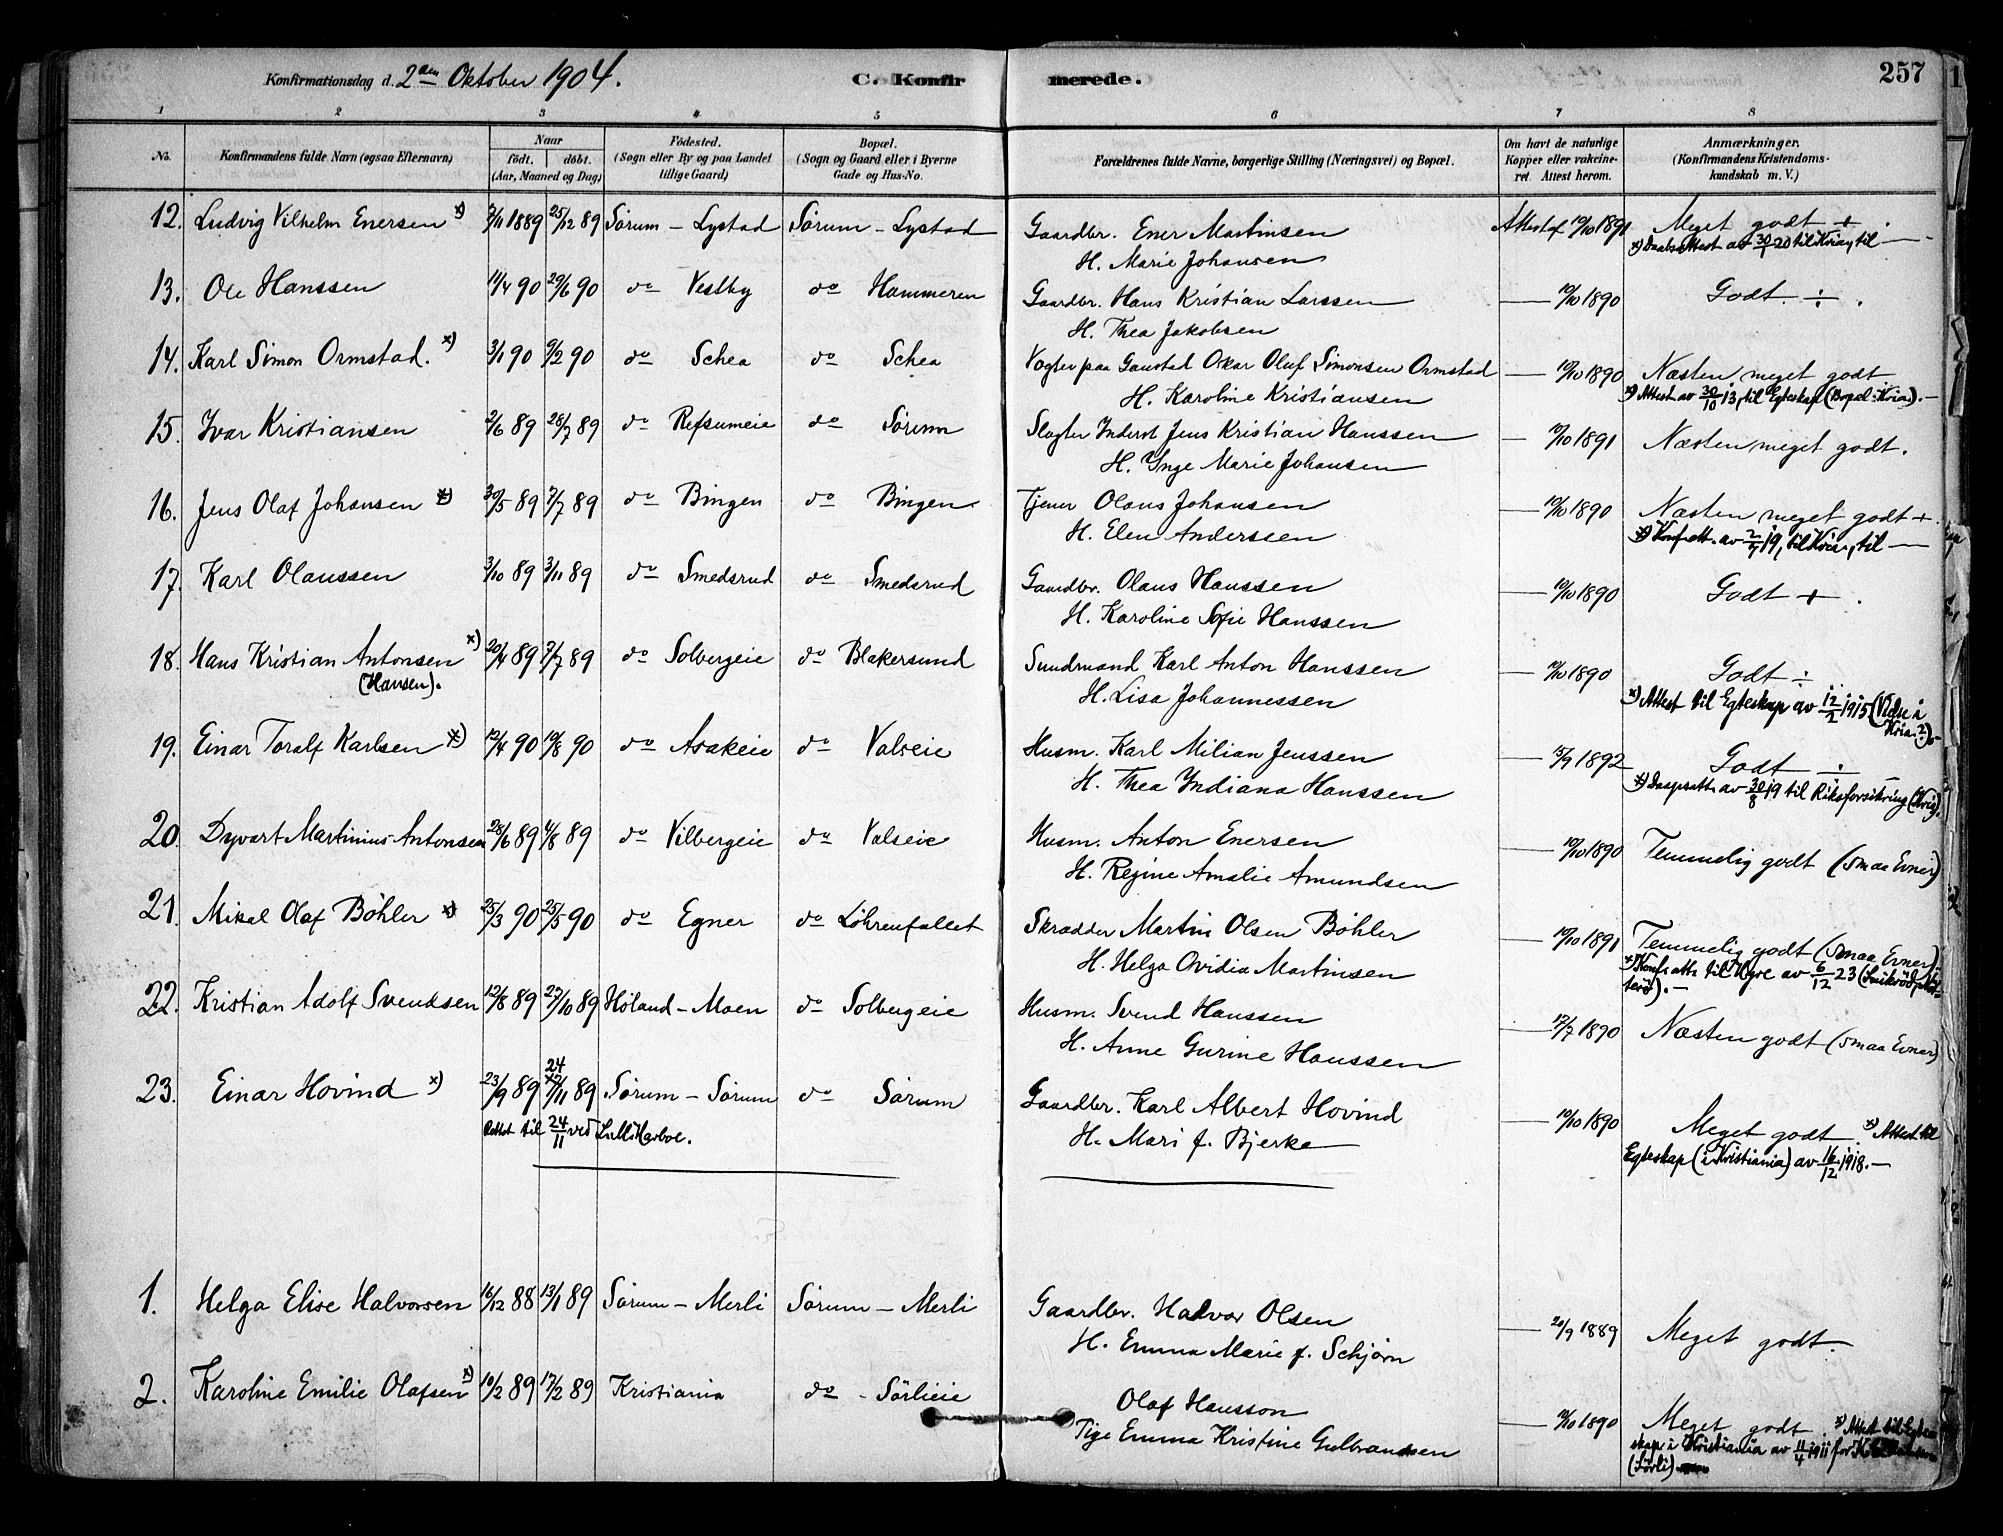 Konfirmationsdag d. 2den Oktober 1904.
C. Konfirmerede.
257
1 2 3 4 5 6 7 8
No. Konfirmandens fulde Navn (ogsaa Efternavn) Naar født. døbt. (Aar, Maaned og Dag) Fødested. (Sogn eller By og paa Landet tillige Gaard) Bopæl. (Sogn og Gaard eller i Byerne Gade og Hus-No. Forældrenes fulde Navne, borgerlige Stilling (Næringsvei) og Bopæl. Om havt de naturlige Kopper eller vakcineret. Attest herom. Anmærkninger. (Konfirmandens Kristendomskundskab m. V.)
12. Ludvig Vilhelm Enersen x) 7/11 1889 25/12 89 Sørum - Lystad Sørum - Lystad Gaardbr. Ener Martinsen Attest af 10/10 1891 Meget godt +
H. Marie Johansen x) Daabsattest av 30/7 20 til Kria, til —
13. Ole Hanssen 11/4 90 29/6 90 do Vestby do Hammeren Gaardbr. Hans Kristian Larssen — 10/10 1890 Godt ÷.
H. Thea Jakobsen
14. Karl Simon Ormstad. x) 3/1 90 9/2 90 do Schea do Schea Vogter paa Gaustad Oskar Oluf Simonsen Ormstad — 10/10 1890 Næsten meget godt
H. Karoline Kristiansen x) Attest av 30/10 13, til Egteskap (Bopæl: Kria). —
15. Ivar Kristiansen 2/6 89 28/7 89 do Refsumeie do Sørum Slagter Inderst Jens Kristian Hanssen — 10/10 1891 Næsten meget godt.
H. Inge Marie Johansen
16. Jens Olaf Johansen x) 30/5 89 7/7 89 do Bingen do Bingen Tjener Olaus Johansen — 10/10 1890 Næsten meget godt +
H. Elen Anderseen x) Konf.att. av 2/7 19, til Kria, til —
17. Karl Olaussen 3/10 89 3/11 89 do Smedsrud do Smedsrud Gaardbr. Olaus Hanssen — 10/10 1890 Godt +.
H. Karoline Sofie Hanssen
18. Hans Kristian Antonsen x) 20/4 89 7/7 89 do Solbergeie do Blakersund Sundmand Karl Anton Hanssen — 10/10 1890 Godt ÷
(Hansen). H. Lisa Johannessen x) Attest til Egteskap av 12/2 1915 (Vidse i Kria. 2/.) —
19. Einar Toralf Karlsen x) 12/4 90 10/8 90 do Asakeie do Valseie Husm. Karl Milian Jenssen — 15/9 1892 Godt ÷
H. Thea Indiana Hanssen x) Daapsatt. av 30/8 19 til Riksforsikring (Kria).
20. Dyvart Martinius Antonsen 28/6 89 4/8 89 do Vilbergeie do Valseie Husm. Anton Enersen — 10/10 1890 Temmelig godt (smaa Evner)
H. Regine Amalie Amundsen
21. Mikal Olaf Bøhler x) 25/3 90 25/5 90 do Egner do Løhrenfallet Skrædder Martin Olsen Bøhler — 10/10 1891 Temmelig godt (smaa Evner)
H. Helga Ovidia Martinsen x) Konf.att. til Hyre av 6/12 23
22. Kristian Adolf Svendsen 12/8 89 27/10 89 Høland - Moen do Solbergeie Husm. Svend Hanssen — 17/7 1890 Næsten godt (smaa Evner)
H. Anne Gurine Hanssen
23. Einar Hovind x) 23/9 89 24/11 89 Sørum - Sørum do Sørum Gaardbr. Karl Albert Hovind — 10/10 1890 Meget godt. x) Attest til
Rettet til 24/11 ved L.M. Harboe. H. Mari f. Bjerke Egteskap (i Kristiania) av 16/12 1918. —
1. Helga Elise Halvorsen 16/12 88 13/1 89 Sørum - Merli Sørum - Merli Gaardbr. Halvor Olsen — 20/9 1889 Meget godt.
H. Emma Marie f. Schjørn
2. Karoline Emilie Olafsen x) 10/2 89 17/2 89 Kristiania do - Sørlieie Olaf Hansson — 10/10 1890 Meget godt. x) Attest til Egte
Pige Emma Kristine Gulbrandsen skap i Kristiania av 11/4 1911 for
(Sørli)